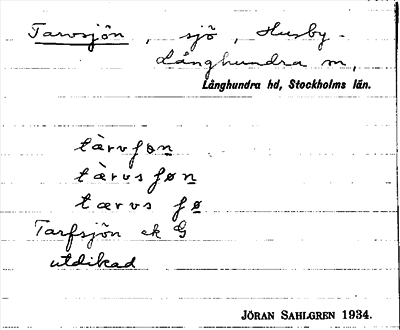 Tarvsjön, sjö, Husby-
Långhundra sn,
Långhundra hd, Stockholms län.
tàrvʃøn
tàrvsʃøn
tærvs ʃø
Tarfsjön ek G
utdikad
JÖRAN SAHLGREN 1934.